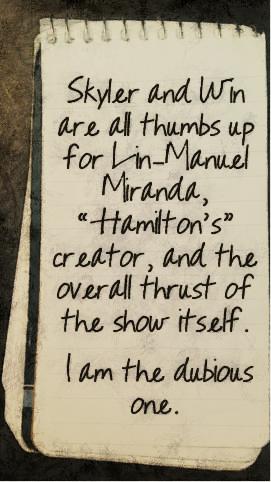 Skyler and Win
are all thumbs up
for Lin-Manuel
Miranda,
“Hamilton's”
creator, and the
overall thrust of
the show itself.
I am the dubious
one.